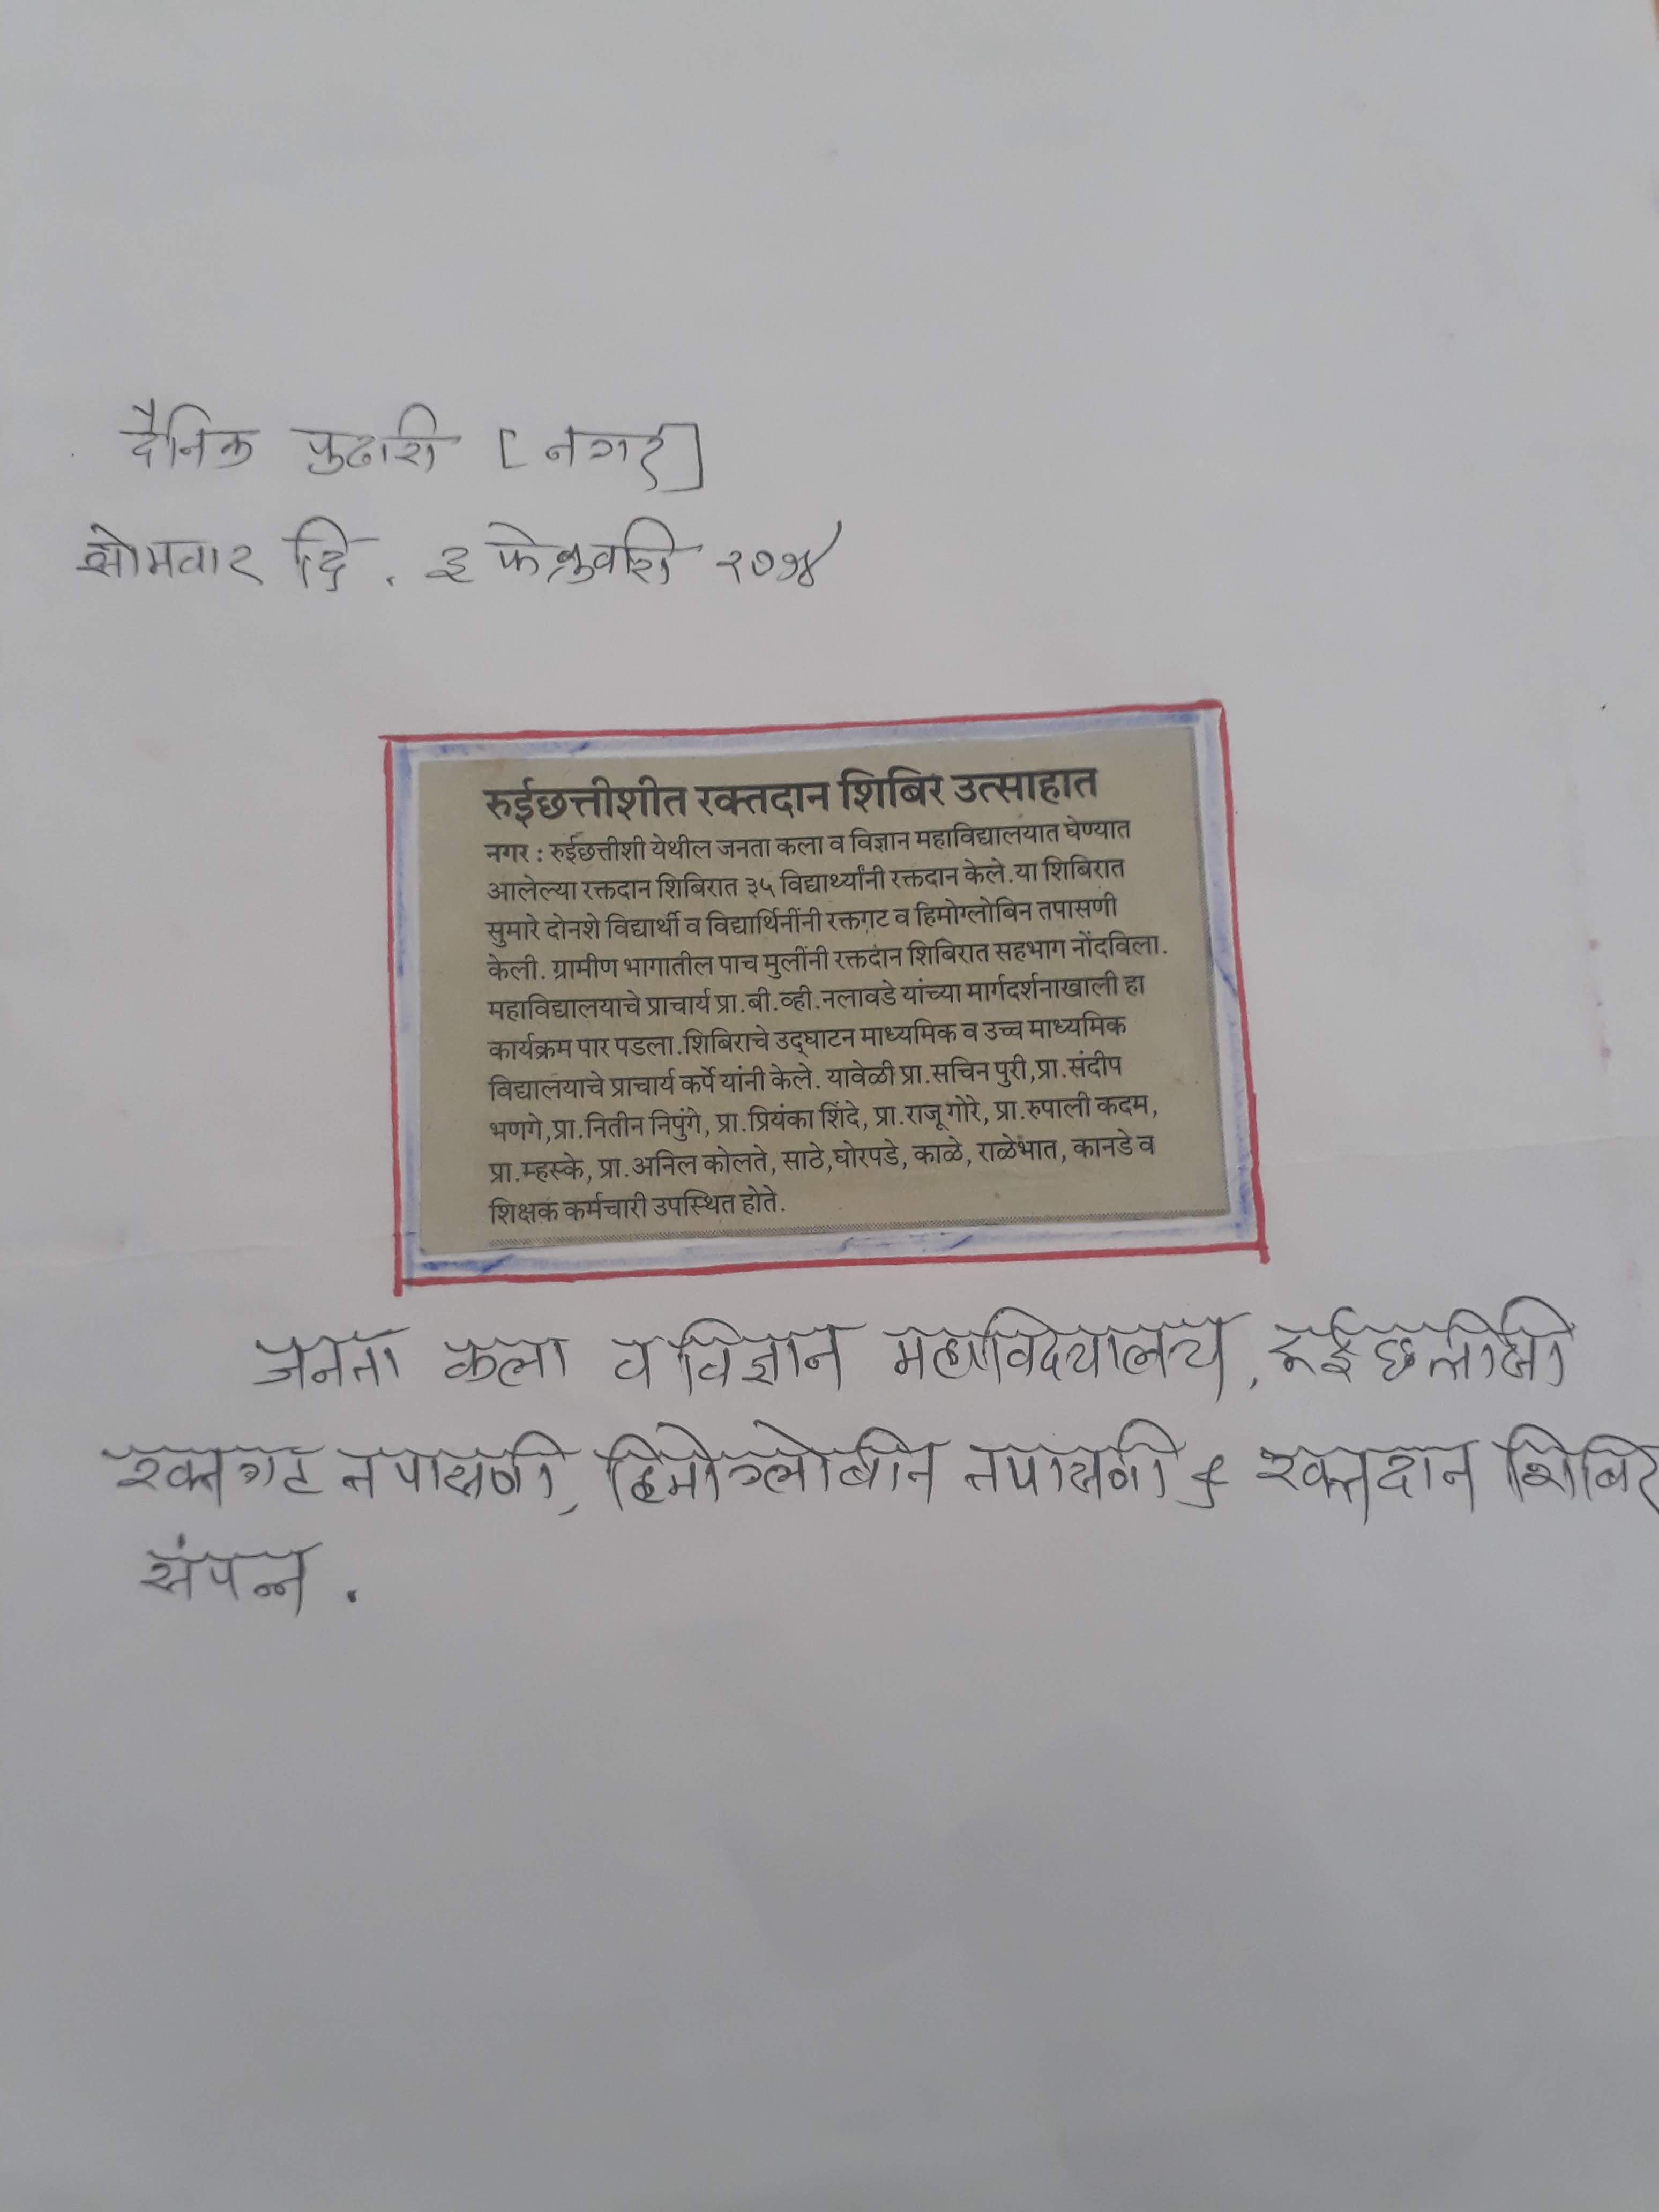 दैनिक पुढारी [नगर]
सोमवार दि. ३ फेब्रुवारी २०१४
रुईछत्तीशीत रक्तदान शिबिर उत्साहात
नगर : रुईछत्तीशी येथील जनता कला व विज्ञान महाविद्यालयात घेण्यात
आलेल्या रक्तदान शिबिरात ३५ विद्यार्थ्यांनी रक्तदान केले.या शिबिरात
सुमारे दोनशे विद्यार्थी व विद्यार्थिनींनी रक्तगट व हिमोग्लोबिन तपासणी
केली. ग्रामीण भागातील पाच मुलींनी रक्तदान शिबिरात सहभाग नोंदविला.
महाविद्यालयाचे प्राचार्य प्रा.बी.व्ही.नलावडे यांच्या मार्गदर्शनाखाली हा
कार्यक्रम पार पडला.शिबिराचे उद्‌घाटन माध्यमिक व उच्च माध्यमिक
विद्यालयाचे प्राचार्य कर्पे यांनी केले. यावेळी प्रा.सचिन पुरी,प्रा.संदीप
भणगे,प्रा.नितीन निपुंगे, प्रा.प्रियंका शिंदे, प्रा.राजू गोरे, प्रा.रुपाली कदम,
प्रा.म्हस्के, प्रा.अनिल कोलते, साठे,घोरपडे, काळे, राळेभात, कानडे व
शिक्षक कर्मचारी उपस्थित होते.
जनता कला व विज्ञान महाविदयालय, रुईछत्तीशी
रक्तगट तपासणी, हिमोग्लोबीन तपासणी & रक्तदान शिबिर
संपन्न.